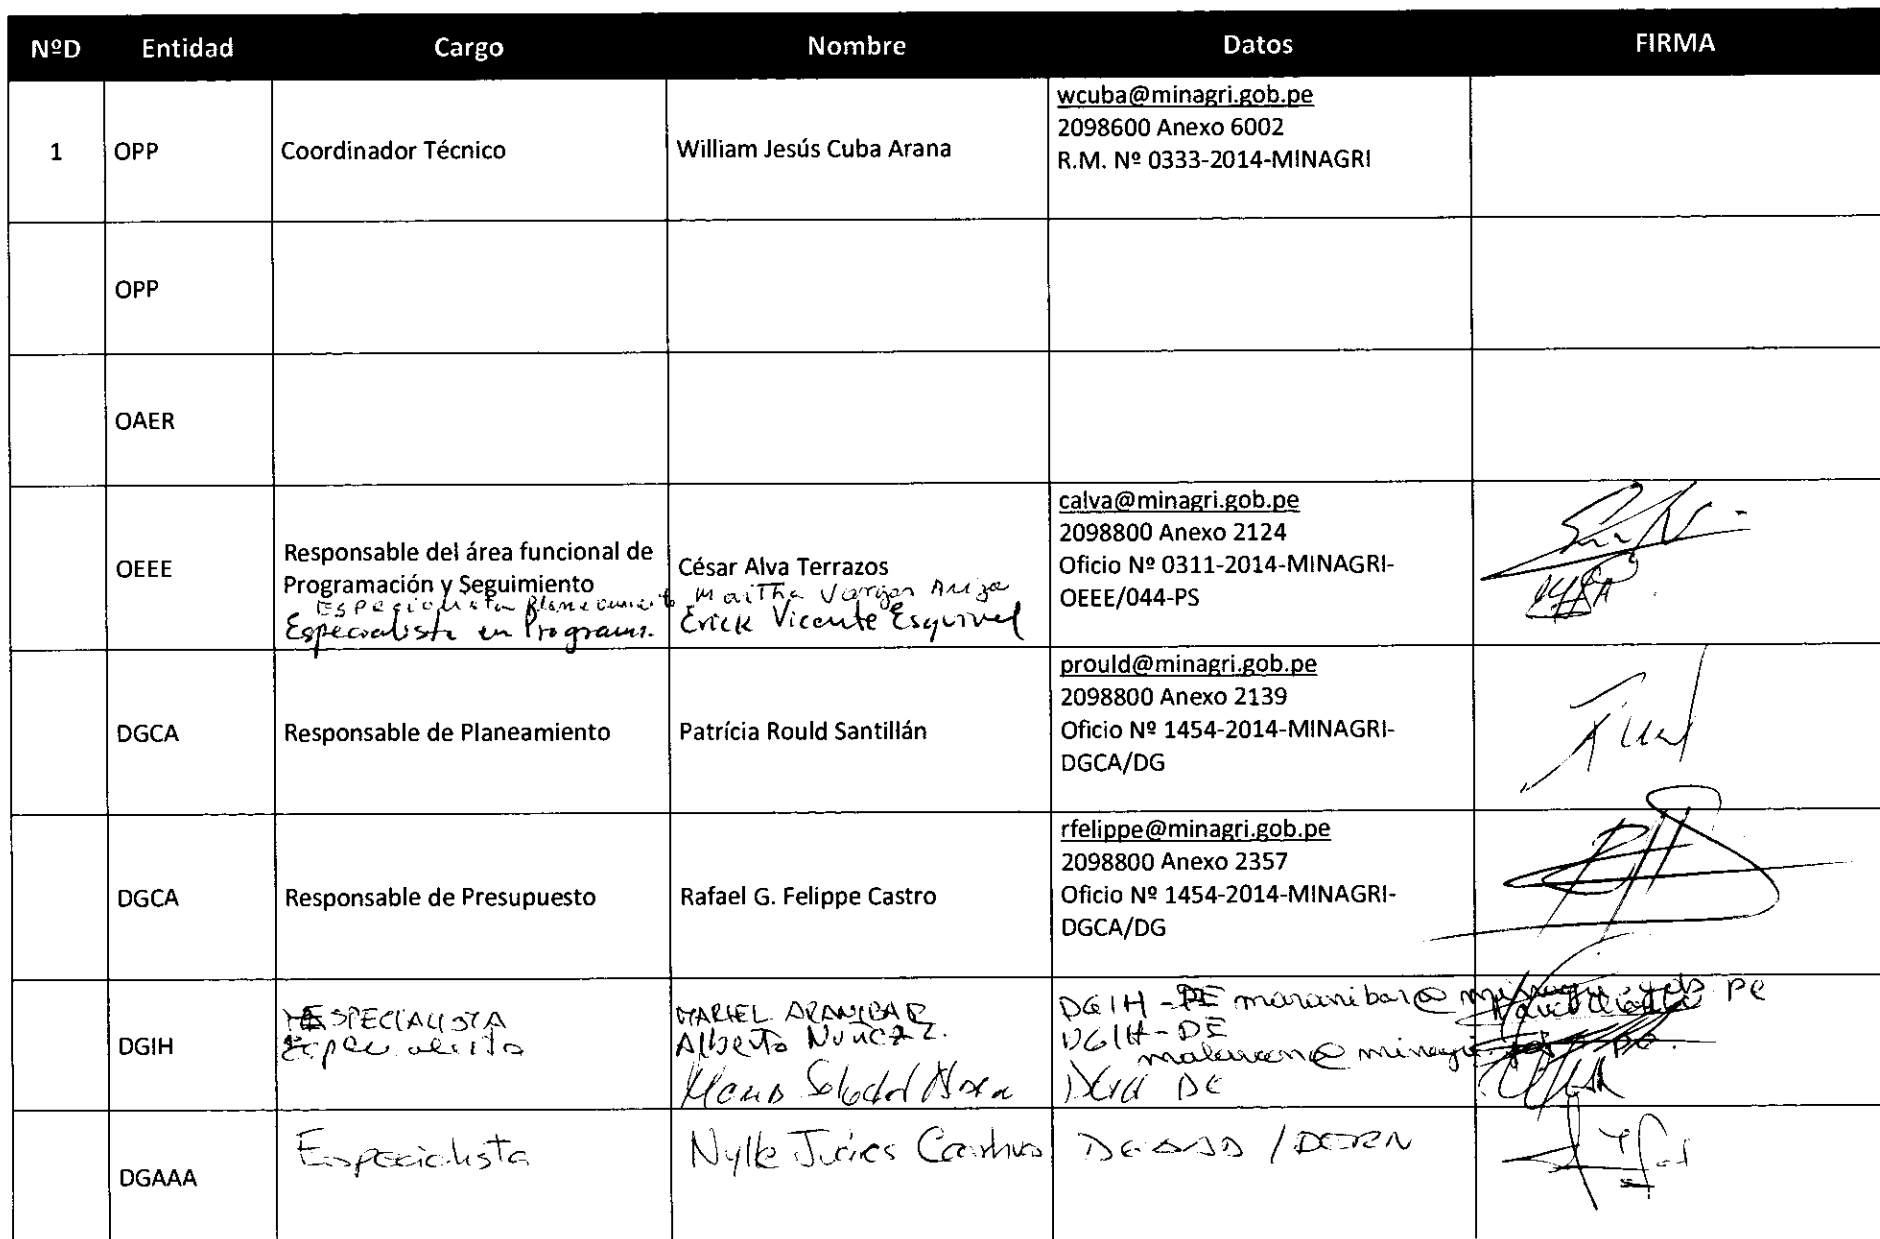 NºD Entidad Cargo Nombre Datos FIRMA
1 OPP Coordinador Técnico William Jesús Cuba Arana
wcuba@minagri.gob.pe
2098600 Anexo 6002
R.M. Nº 0333-2014-MINAGRI
OPP
OAER
OEEE
Responsable del área funcional de
Programación y Seguimiento
Especialista
Especialista en Program.
César Alva Terrazos
Vargas Ariza
Erick Vicente Esquivel
calva@minagri.gob.pe
2098800 Anexo 2124
Oficio Nº 0311-2014-MINAGRI-
OEEE/044-PS
DGCA Responsable de Planeamiento Patrícia Rould Santillán
prould@minagri.gob.pe
2098800 Anexo 2139
Oficio Nº 1454-2014-MINAGRI-
DGCA/DG
DGCA Responsable de Presupuesto Rafael G. Felippe Castro
rfelippe@minagri.gob.pe
2098800 Anexo 2357
Oficio Nº 1454-2014-MINAGRI-
DGCA/DG
DGIH
ESPECIALISTA
MARIEL ARANIBAR
Alberto
DGIH - DE maranibar@
DGIH - DE
DGAAA Especialista Nylle